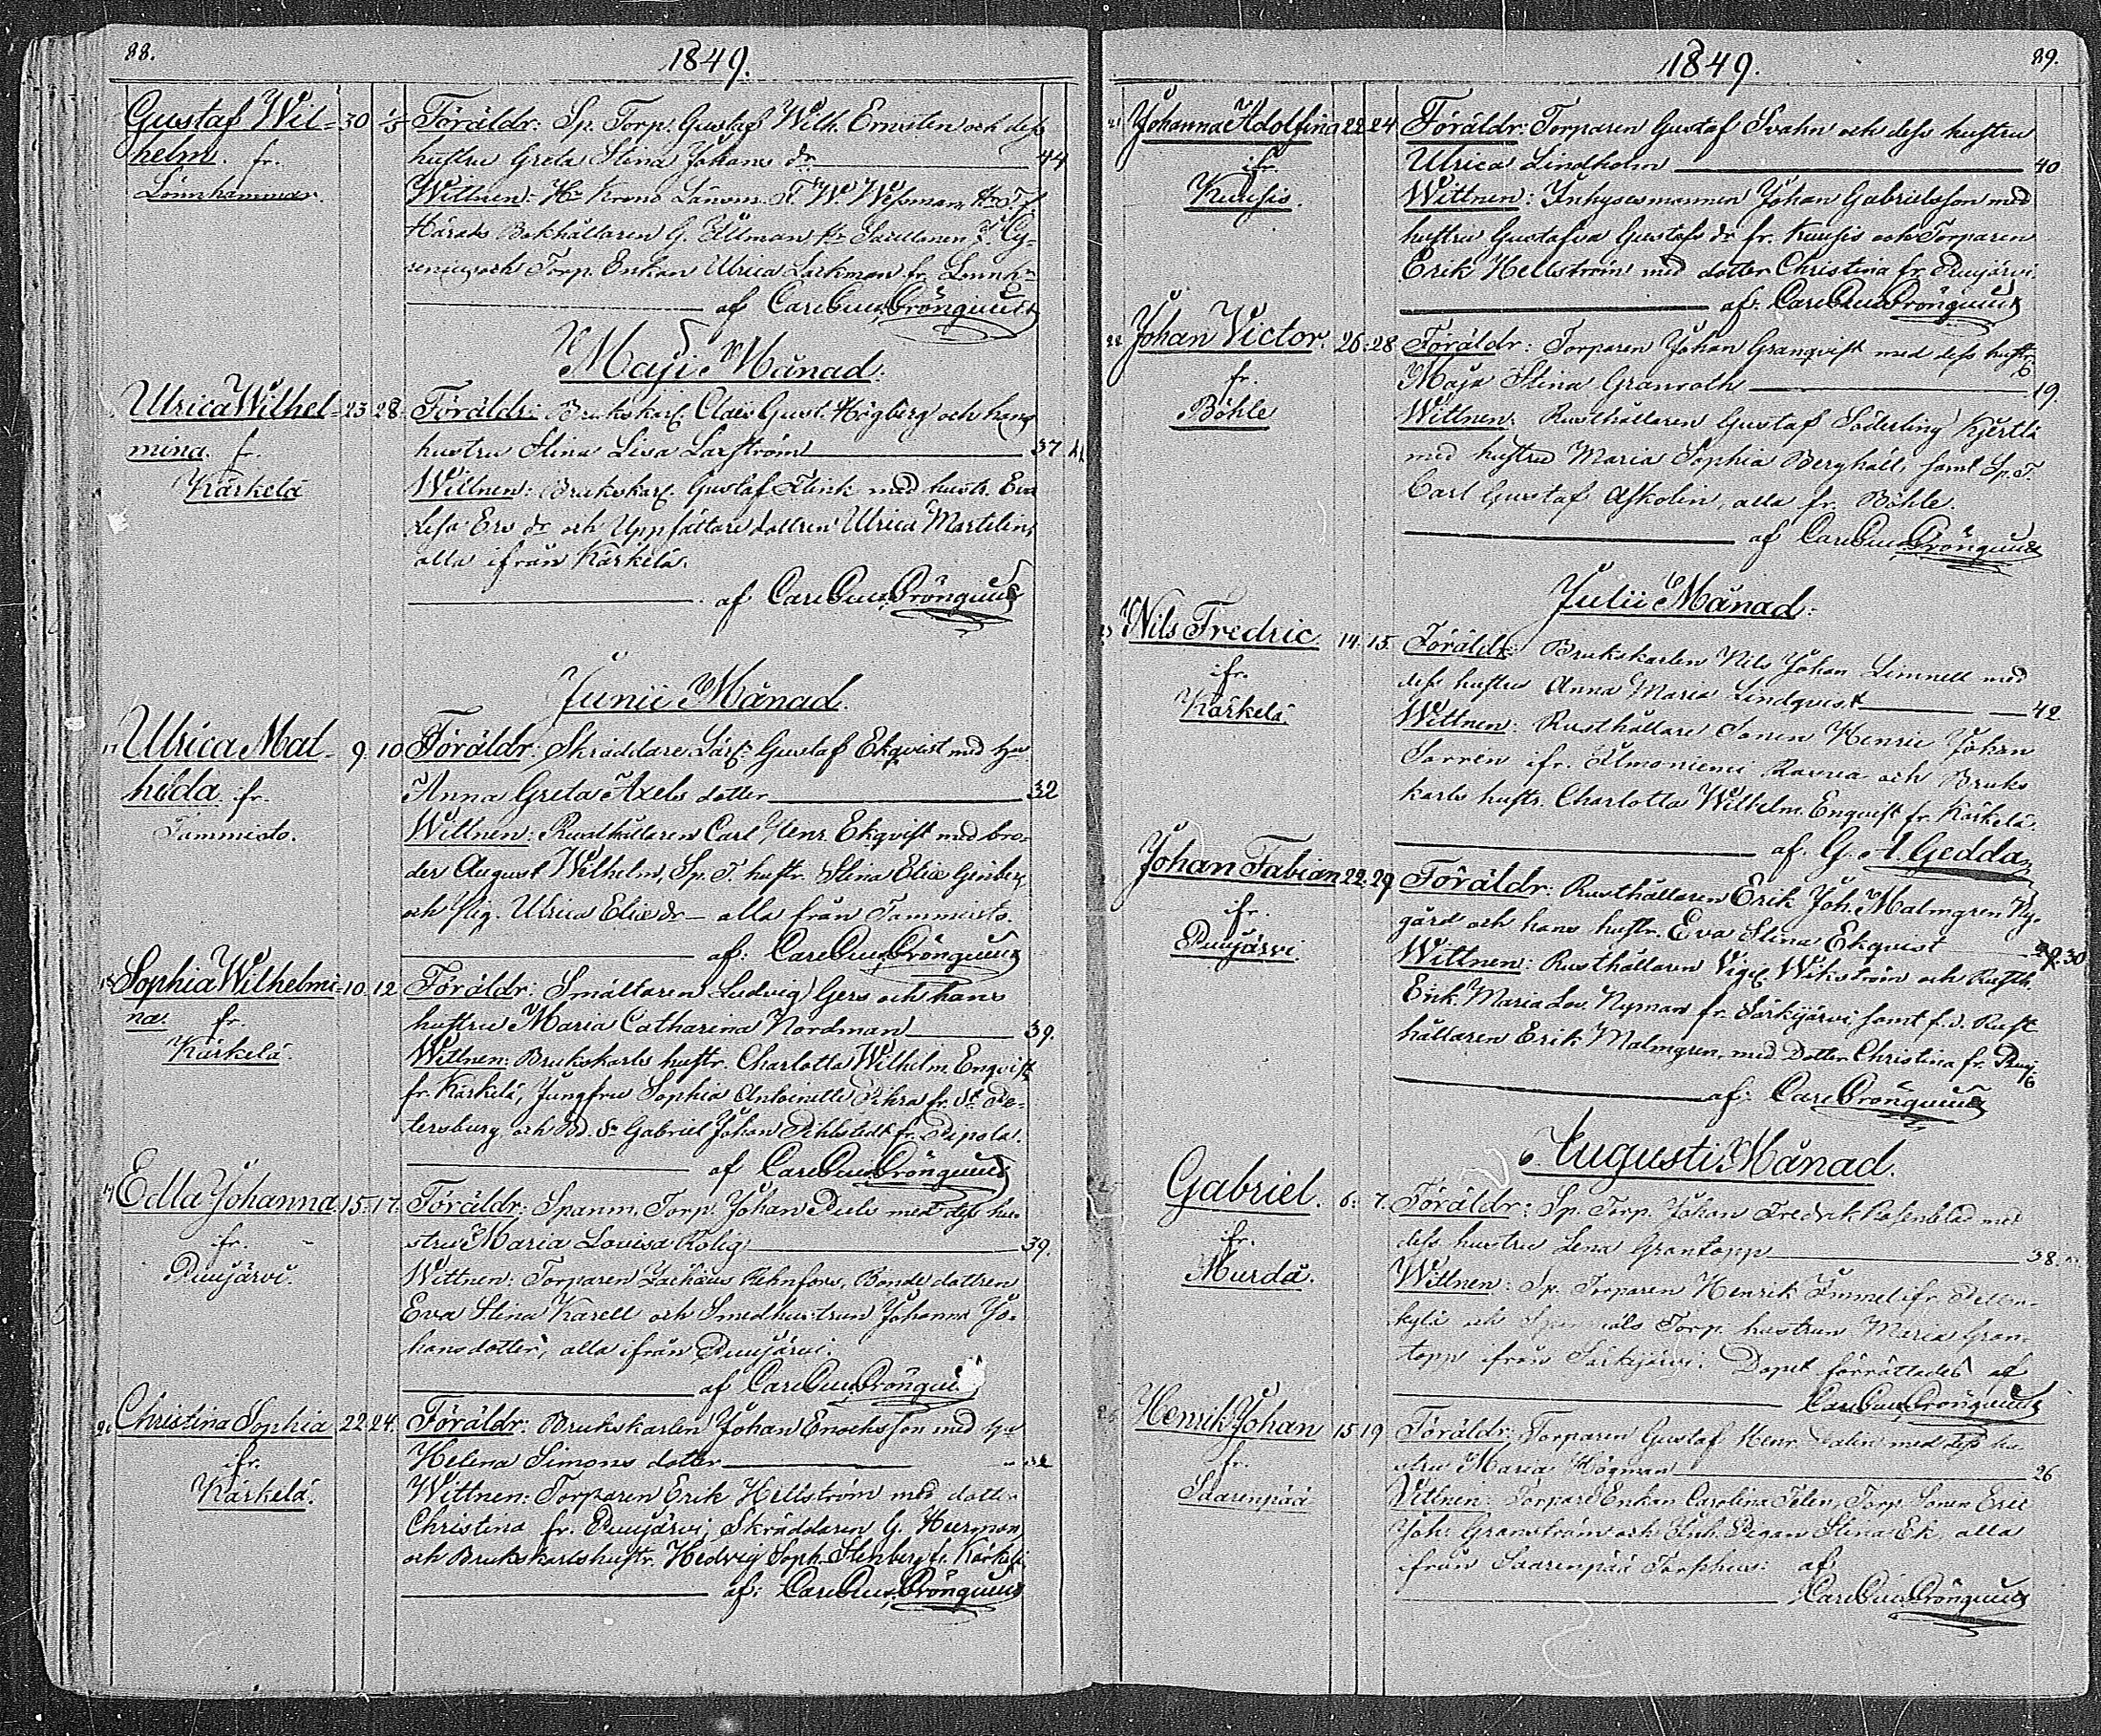 88.
1849.
Gustaf Wil- 30 1/5 Föräldr: Sp. Torp. Gustaf Wilh. Ernsten och dess
helm. fr. hustru Greta Stina Johans dr 44
Lönnhammar. Wittnen: Hr Krono Länsm. F. W. Wessman, Hr
Härads Bokhållaren G. Ållman,
och Torp. Enkan Ulrica Lackman fr. Lönnh.
af Carl Gust. Grönqvist
Maji Månad.
Ulrica Wilhel- 23. 28. Föräldr: Brukskarl. Claës Gust. Högberg och hans
mina. f. hustru Stina Lisa Laxström 37
Kärkelä Wittnen: Brukskarl. Gustaf Flink med hustr. Eva
Lisa Ers dr och Uppsättare dottren Ulrica Martelin,
alla ifrån Kärkelä.
af Carl Gust. Grönqvist
Junii Månad.
Ulrica Mat- 9. 10 Föräldr: Skräddare Lärl: Gustaf Ekqvist med hu
hilda. fr. Anna Greta Axels dotter 32
Tammisto. Wittnen: Rusthållaren Carl Henr. Ekqvist med bro-
der August Wilhelm, Sp. T. hustr. Stina Eliæ
och Pig. Ulrica Eliæ dr — alla från Tammisto.
af: Carl Gust. Grönqvist
Sophia Wilhelmi- 10. 12. Föräldr: Smältaren Ludvig Gers och hans
na. fr. hustru Maria Catharina Nordman 39.
Kärkelä. Wittnen: Brukskarls hustr. Charlotta Wilhelm. Enqvist
fr. Kärkelä, Jungfru Sophia Antoinette Pihra fr. St. Pe-
tersburg och Gabriel Johan Pihlstedt fr. Pipola.
af Carl Gust. Grönqvist
Edla Johanna 15. 17. Föräldr: Spanm. Torp. Johan Piels med dess hu-
ifr. stru Maria Lovisa Rolig 39.
Puujärvi. Wittnen: Torparen Zachæus Rehnfors, Bonde dottren
Eva Stina Karell och Smedhustrun Johanna Jo-
hansdotter, alla ifrån Puujärvi.
af Carl Gust. Grönqvist
Christina Sophia 22. 24. Föräldr: Brukskarlen Johan Enochsson med hu
ifr. Helena Simons dotter 32
Kärkelä. Wittnen: Torparen Erik Hellström med dotter
Christina fr. Puujärvi, Skräddaren G. Heerman
och Brukskarlshustr. Hedvig Soph. Stenberg fr. Kärkelä
af: Carl Gust. Grönqvist
89.
1849.
21 Johanna Adolfina 22. 24 Föräldr: Torparen Gustaf Svahn och dess hustru
ifr. Ulrica Lindholm 40
Kuusis. Wittnen: Inhysesmannen Johan Gabrielsson med
hustru Gustafva Gustafs dr fr. Kuusis och Torparen
Erik Hellström med dotter Christina fr. Puujärvi
af: Carl Gust. Grönqvist
22 Johan Victor. 26. 28. Föräldr: Torparen Johan Granqvist med dess hustr
fr. Maja Stina Granroth 19
Böhle Wittnen: Rusthållaren Gustaf Söderling Kjertlä
med hustru Maria Sophia Berghäll, samt Sp. T.
Carl Gustaf Askolin, alla fr. Böhle.
af Carl Gust. Grönqvist
Julii Månad.
23 Nils Fredric 14. 15. Föräldr: Brukskarlen Nils Johan Limnell med
ifr. dess hustru Anna Maria Lindqvist 42
Kärkelä. Wittnen: Rusthållare Sonen Henric Johan
Sorrén ifr. Ilmoniemi och Bruks
karls hustr. Charlotta Wilhelm. Enqvist fr. Kärkelä.
af. G. A. Gedda
Johan Fabian 22. 29 Föräldr: Rusthållaren Erik Joh. Malmgren Ny-
ifr. gård och hans hustr. Eva Stina Ekqvist 30
Puujärvi. Wittnen: Rusthållaren Vigel. Wikström och Rusth.
Enk. Maria Lov. Nyman fr. Särkijärvi samt f.d. Rust-
hållaren Erik Malmgren, med Dotter Christina fr. Puuj.
af: Carl Grönqvist
Augusti Månad.
25 Gabriel. 6. 7. Föräldr: Sp. Torp. Johan Fredrik Rosenblad med
ifr. dess hustru Lena Grantopp 38.
Murda. Wittnen: Sp. Torparen Henrik Immel ifr.
kylä och Torp. hustrun Maria Gran-
topp ifrån Särkijärvi. Dopet förrättades af
Carl Gust. Grönqvist
26 Henrik Johan 15 19 Föräldr: Torparen Gustaf Henr. Dalin med dess hu-
fr. stru Maria Högman 26
Saarenpää Wittnen: Torpare Enkan Carolina Felen, Torp. Sonen Eric
Joh. Granström och Inh. Pigan Stina Ek, alla
ifrån Saarenpää Torphus: af
Carl Gust. Grönqvist